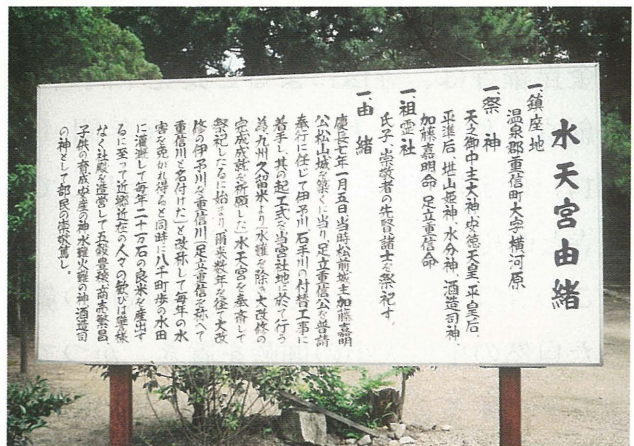 水天宮由緒
一、鎮座地
温泉郡重信町大字横河原
一、祭神
天之御中主大神、安徳天皇、平皇后、
平進后、埴山姫神、水分神、酒造司神、
加藤嘉明命 足立重信命
一、祖霊社
氏子、崇敬者の先賢諸士を祭祀す。
一、由緒
慶長七年一月五日当時松前城主加藤嘉明
公松山城を築くに当り足立重信公を普請
奉行に任じて伊予川石手川の付替工事に
着手し、其の起工式を当宮社地に於て行う
為九州久留米より「水難を除き大改修の
完成成就を祈願した」水天宮を奉斎して
祭祀したるに始まり、爾来数年を経て大改
修の伊予川を重信川「足立重信を称へて
重信川と名付けた」と改称して毎年の水
害を免かれ得ると同時に八千町歩の水田
に灌漑して毎年二十万石の良米を産出す
るに至って近郷近在の人々の歓びは
なく社殿を造営して五穀豊穣、商売繁昌
子供の育成安産の神水難火難の神、酒造司
の神として部民の崇敬篤し、